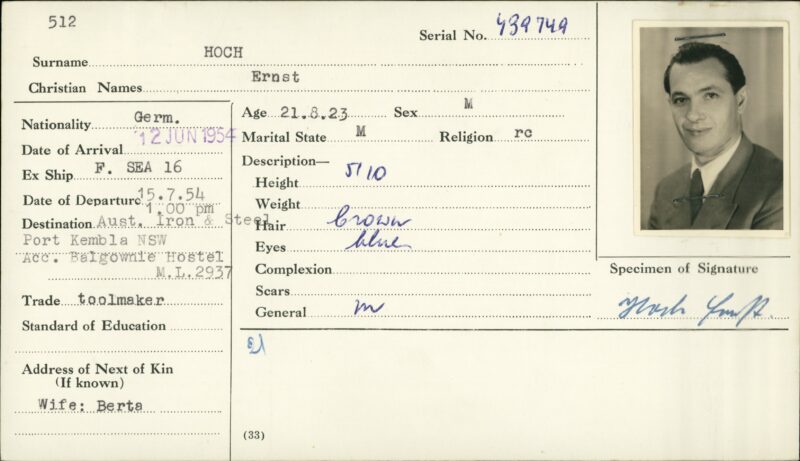 512
Serial No. 439749
Surname HOCH
Christian Names Ernst
Nationality Germ.
Date of Arrival 12 JUN 1954
Ex Ship F. SEA 16
Date of Departure 15.7.54
1.00 pm
Destination Aust. Iron & Steel
Port Kembla NSW
Acc. Balgownie Hostel
M.L.2937
Trade toolmaker
Standard of Education
Address of Next of Kin
(If known)
Wife: Berta
Age 21.8.23 Sex M
Marital State M Religion rc
Description—
Height 5/10
Weight
Hair brown
Eyes blue
Complexion
Scars
General m
(33)
Specimen of Signature
Hoch Ernst.